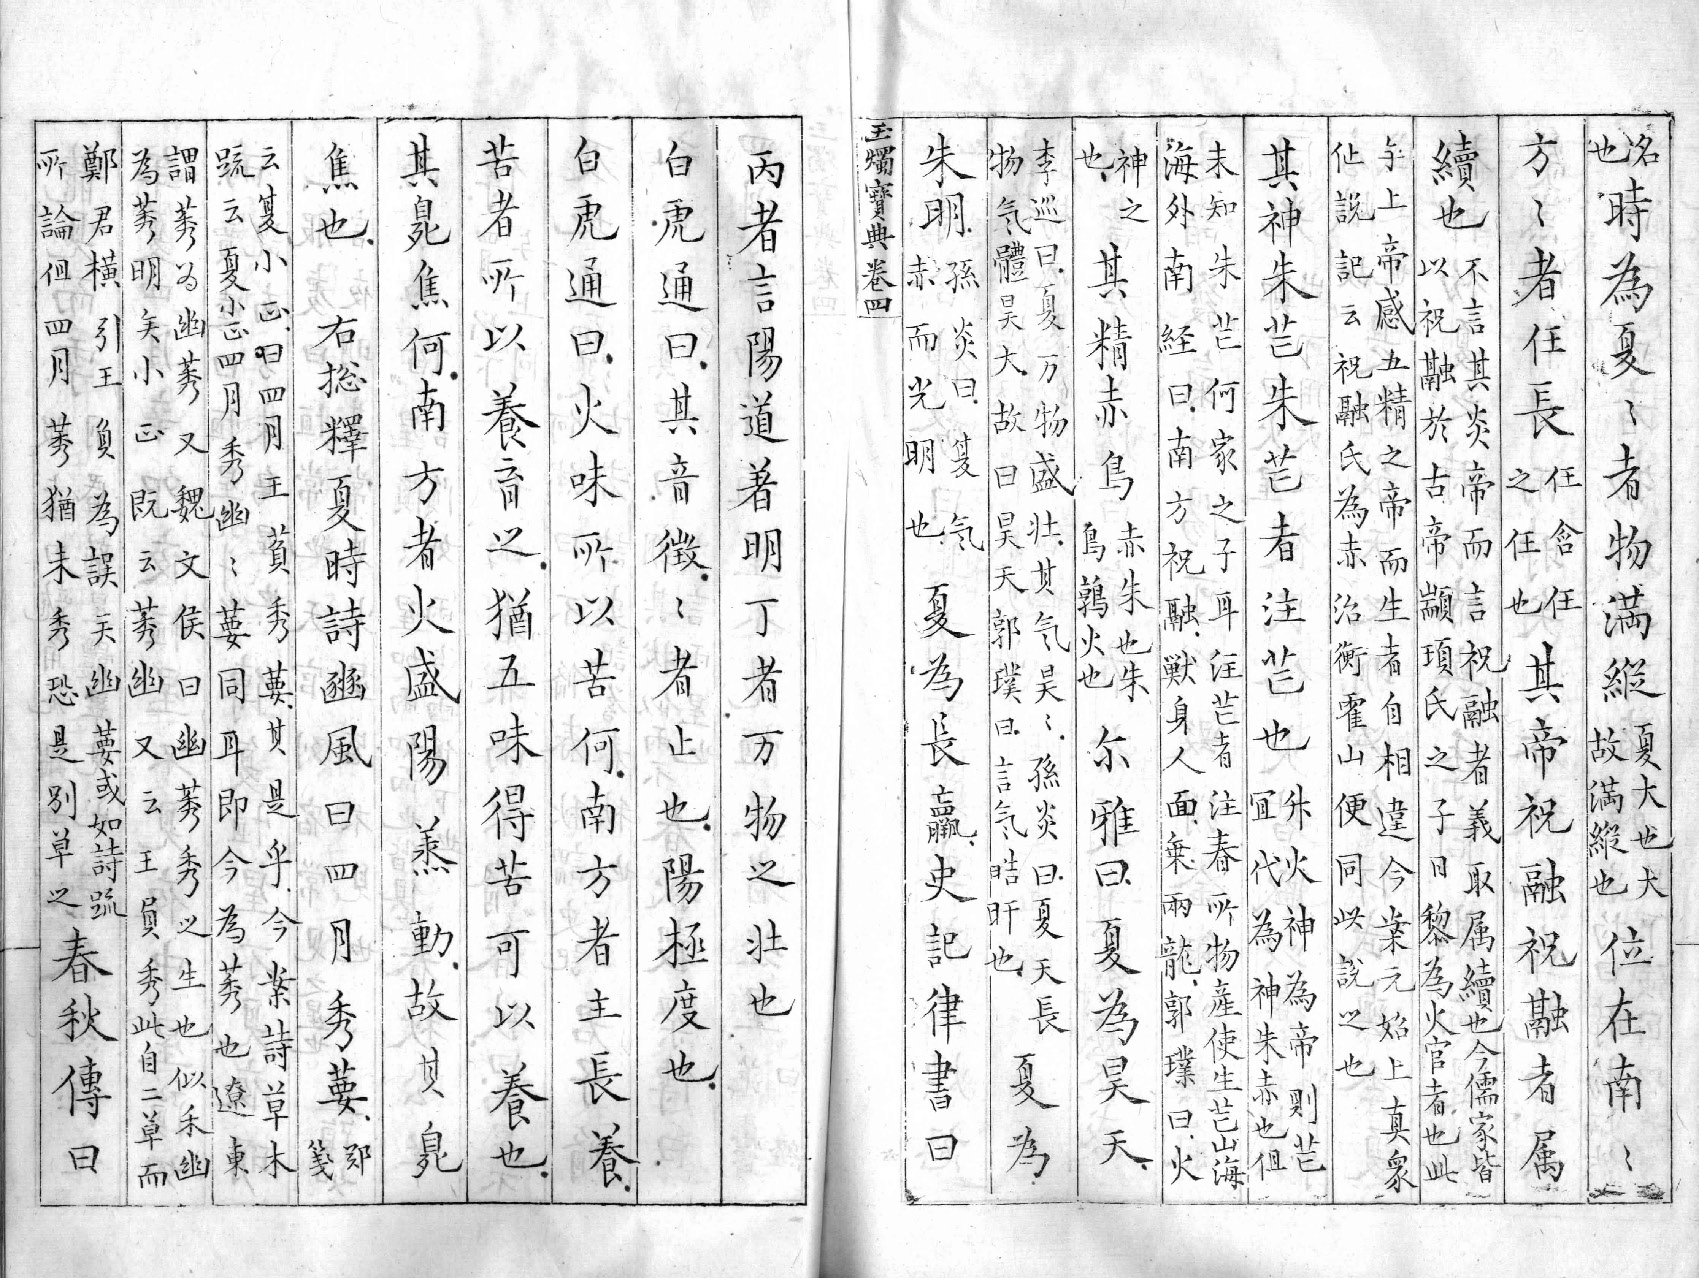 洺也時為夏〻者物満縦夏大也大故満縦也位在南〻
方〻者任長任含任之任也其帝祝融祝融者属
續也不言其炎帝而言祝融者義取属續也今儒家皆以祝融於古帝顓頊氏之子曰黎為火官者也此
与上帝感五精之帝而生者自相違今案元始上真衆仙説記云祝融氏為赤治衡霍山便同此説之也
其神朱芒朱芒者注芒也舛火神為帝則芒冝代為神朱赤也但
未知朱芒何家之子耳注芒者注春所物産使生芒山海海外南経曰南方祝融獣身人面乗兩龍郭璞曰火
神之也其精赤鳥赤朱也朱鳥鶉火也尓雅曰夏為昊天
李巡曰夏万物盛壮其气昊〻孫炎曰夏天長物气體昊大故曰昊天郭璞曰言气晧旰也夏為
朱明孫炎曰夏气赤而光明也夏為長贏史記律書曰
玉燭寶典卷四
丙者言陽道著明丁者万物之壮也
白虎通曰其音徴〻者止也陽極度也
白虎通曰火味所以苦何南方者主長養
苦者所以養育之猶五味得苦可以養也
其臭焦何南方者火盛陽蒸動故其臭
焦也右捴釋夏時詩豳風曰四月秀葽鄭箋
云夏小正曰四月王萯秀葽其是乎今案詩草木䟽云夏小正四月秀幽〻葽同耳即今為莠也遼東
謂莠為幽莠又魏文侯曰幽莠秀之生也似禾幽為莠明矣小正既云莠幽又云王員秀此自二草而
鄭君横引王負為誤矣幽葽或如詩䟽所論但四月莠猶未秀恐是別草之春秋傳曰